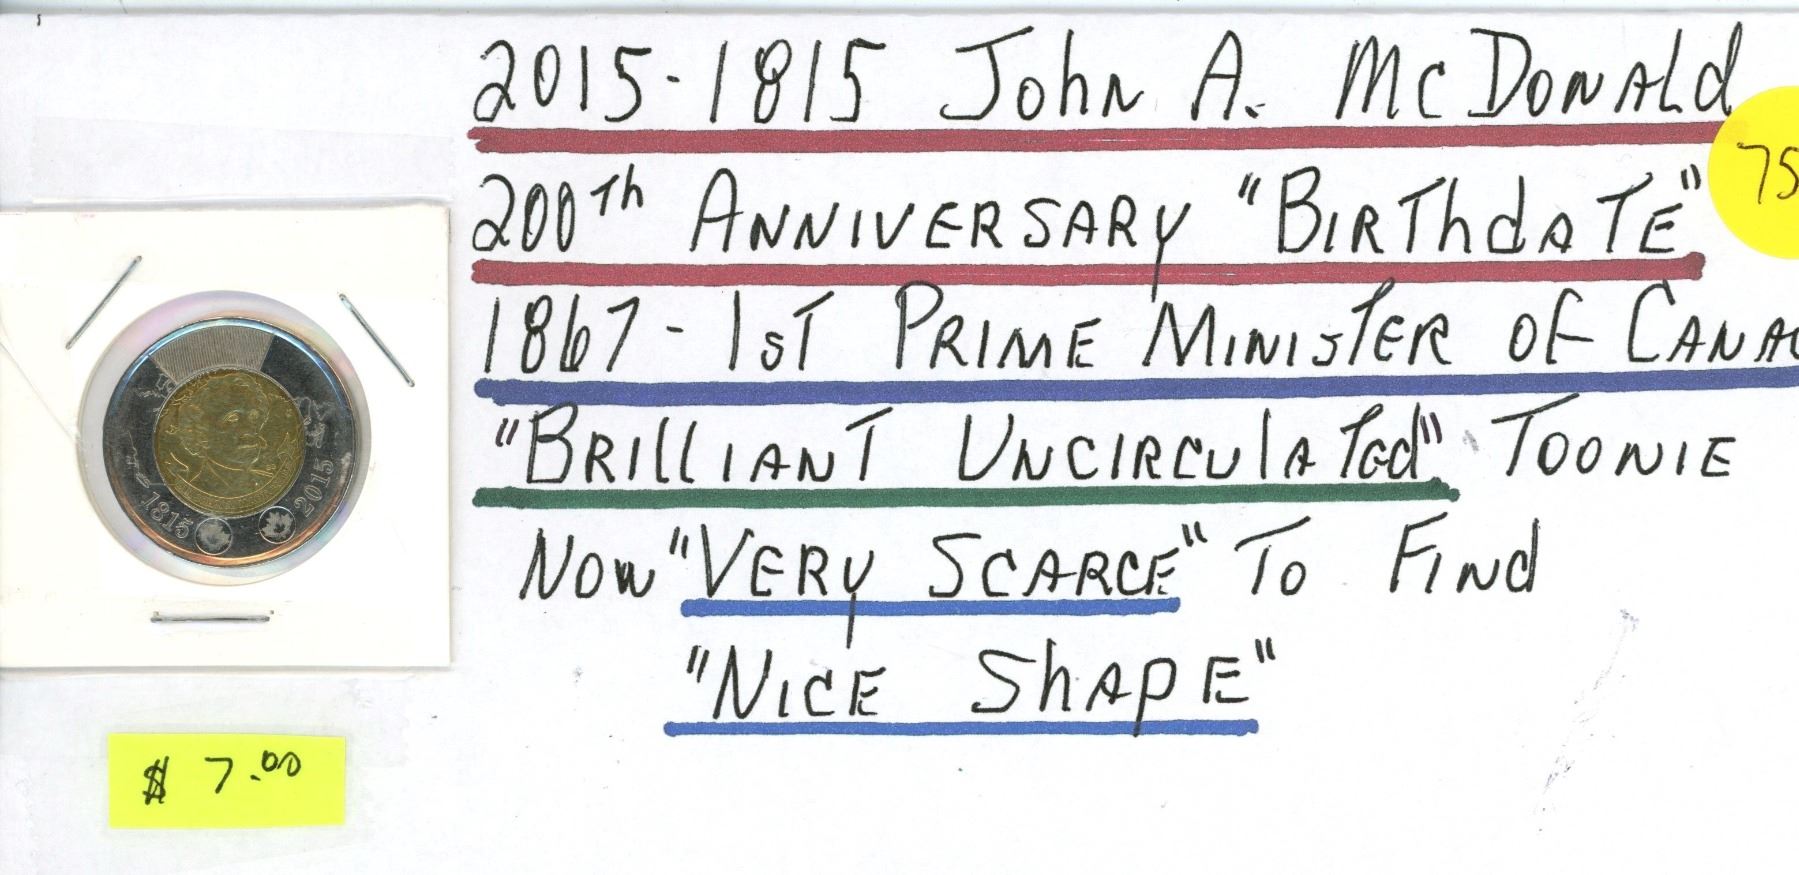 2015-1815 John A. McDonald
200Th Anniversary "Birthdate"
75
1867 - 1st Prime Minister of Cana
"Brilliant Uncirculated" Toonie
Now "Very Scarce" To Find
"Nice Shape"
1815 2015
$ 7.00